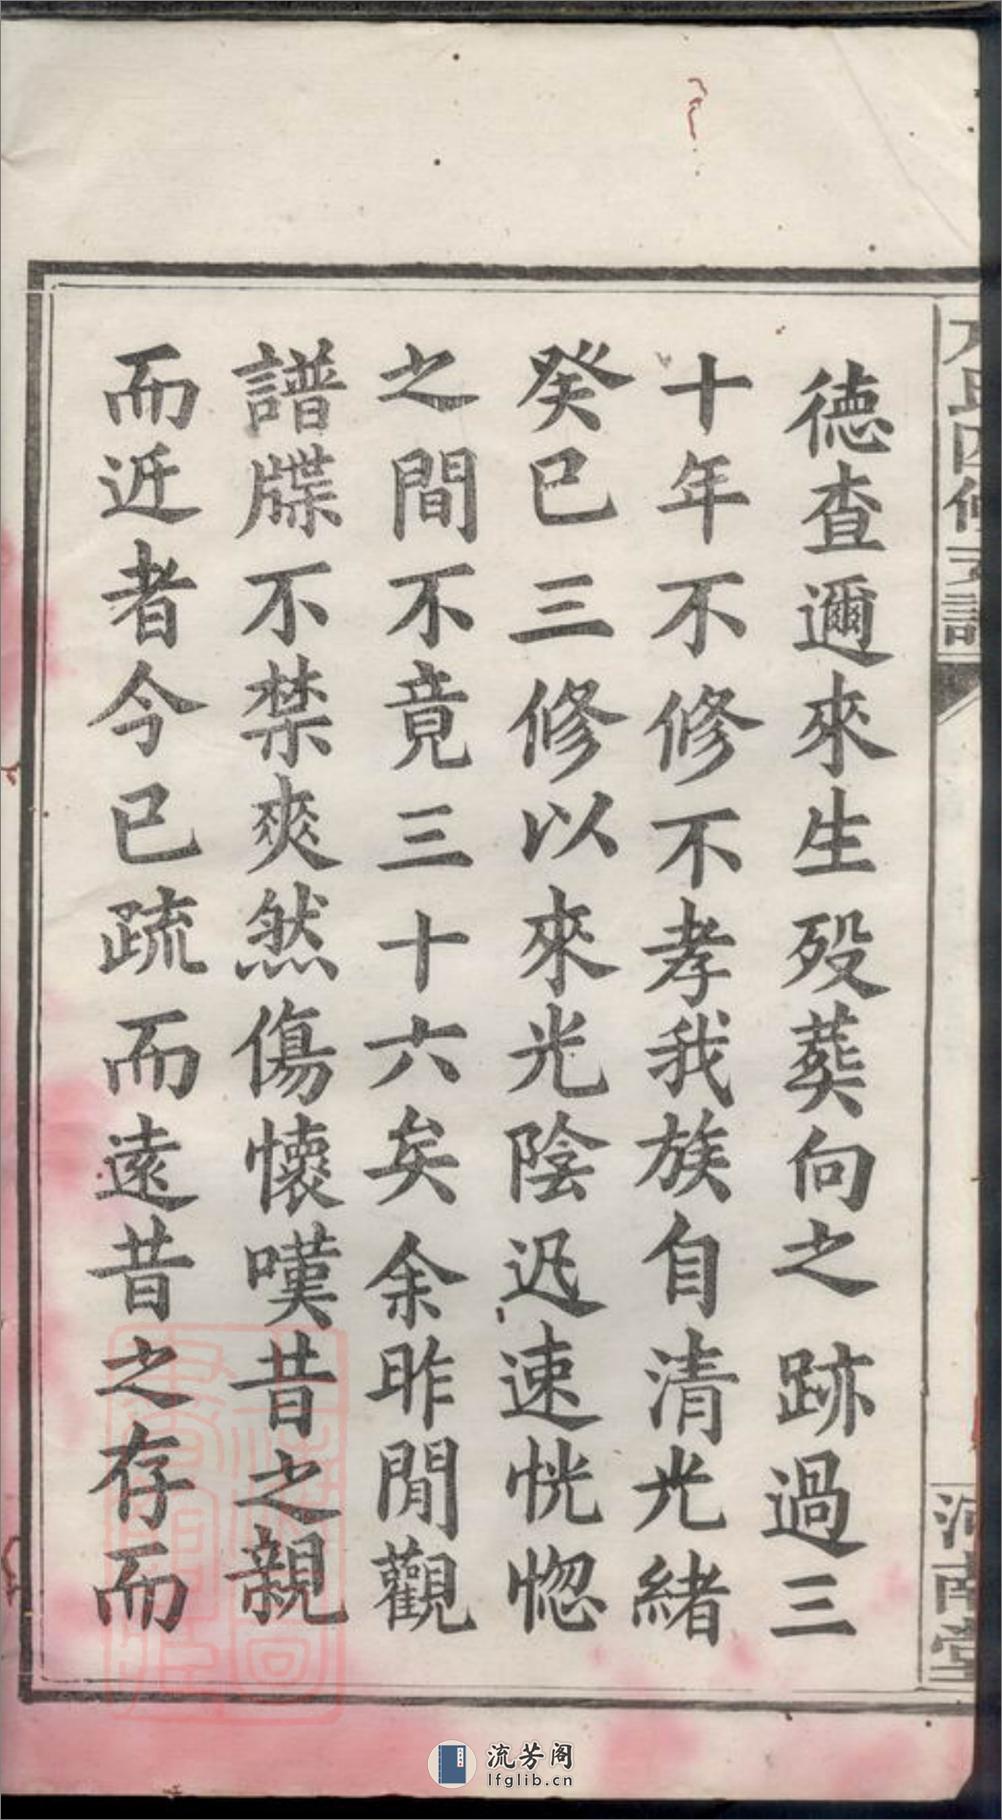 德查邇來生歿葬向之跡過三
十年不修不孝我族自清光緒
癸巳三修以來光陰迅速恍惚
之間不竟三十六矣余昨閒觀
譜牒不禁爽然傷懷嘆昔之親
而近者今已疏而遠昔之存而
河南堂
流芳阁
lfglib.cn